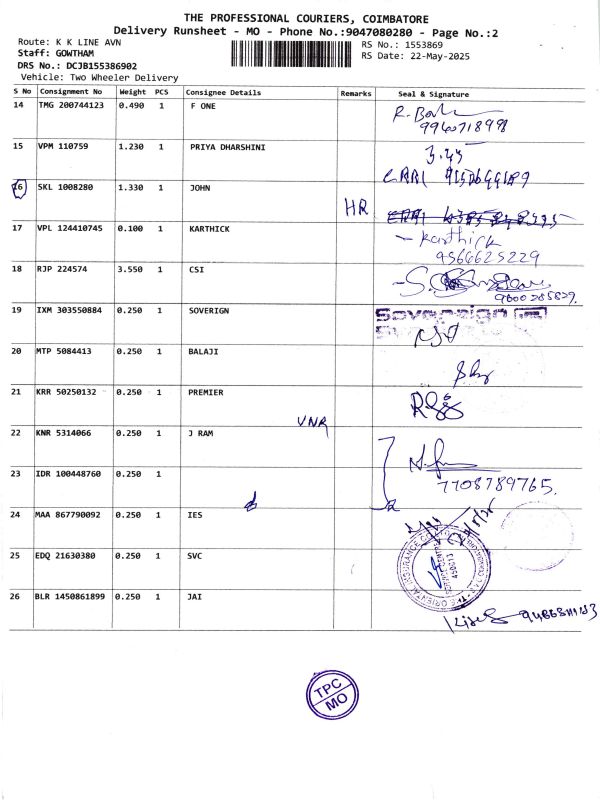 THE PROFESSIONAL COURIERS, COIMBATORE
Delivery Runsheet - MO - Phone No.:9047080280 - Page No.:2
Route: K K LINE AVN
Staff: GOWTHAM
DRS No.: DCJB155386902
Vehicle: Two Wheeler Delivery
RS No.: 1553869
RS Date: 22-May-2025
S No Consignment No Weight PCS Consignee Details Remarks Seal & Signature
14 TMG 200744123 0.490 1 F ONE
9940718998
15 VPM 110759 1.230 1 PRIYA DHARSHINI
3.45
16 SKL 1008280 1.330 1 JOHN
HR
17 VPL 124410745 0.100 1 KARTHICK
Karthick
9566625229
18 RJP 224574 3.550 1 CSI
19 IXM 303550884 0.250 1 SOVERIGN
Sovereign
20 MTP 5084413 0.250 1 BALAJI
21 KRR 50250132 0.250 1 PREMIER
VNR
22 KNR 5314066 0.250 1 J RAM
23 IDR 100448760 0.250 1
7708789765.
24 MAA 867790092 0.250 1 IES
25 EDQ 21630380 0.250 1 SVC
26 BLR 1450861899 0.250 1 JAI
TPC
MO